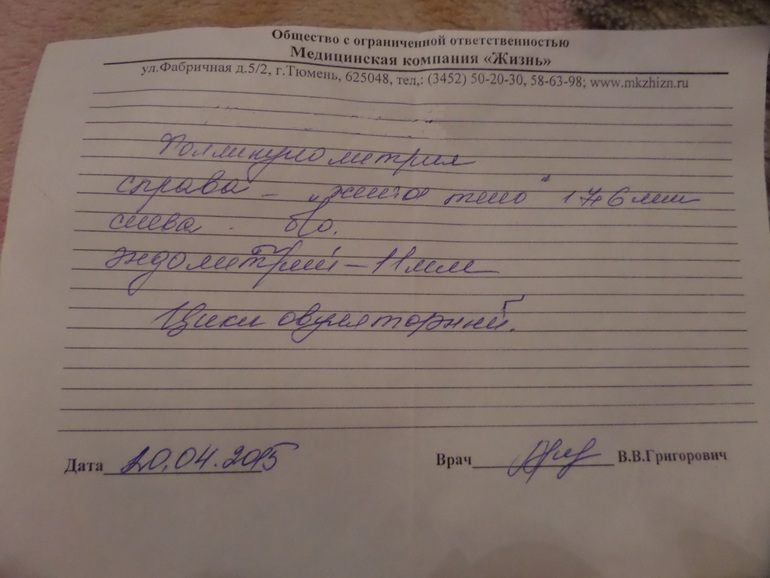 Общество с ограниченной ответственностью
Медицинская компания «Жизнь»
ул.Фабричная д.5/2, г.Тюмень, 625048, тел,: (3452) 50-20-30, 58-63-98; www.mkzhizn.ru
Фолликулометрия
справа - „желтое тело“
слева - б/о.
Эндометрий - 11мм
Цикл овуляторный.
Дата 20.04.2015 Врач В.В.Григорович